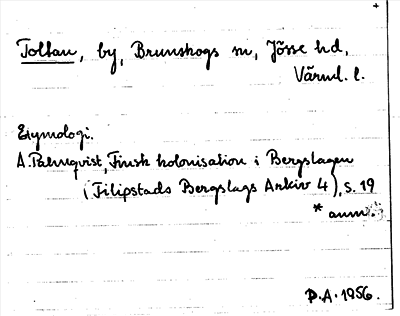 +
Toltan, by, Brunskogs sn, Jösse hd,
Värml. l.
Etymologi.
A. Palmqvist, Finsk kolonisation i Bergslagen
(Filipstads Bergslags Arkiv 4), s. 19
* anm.
P.A. 1956.